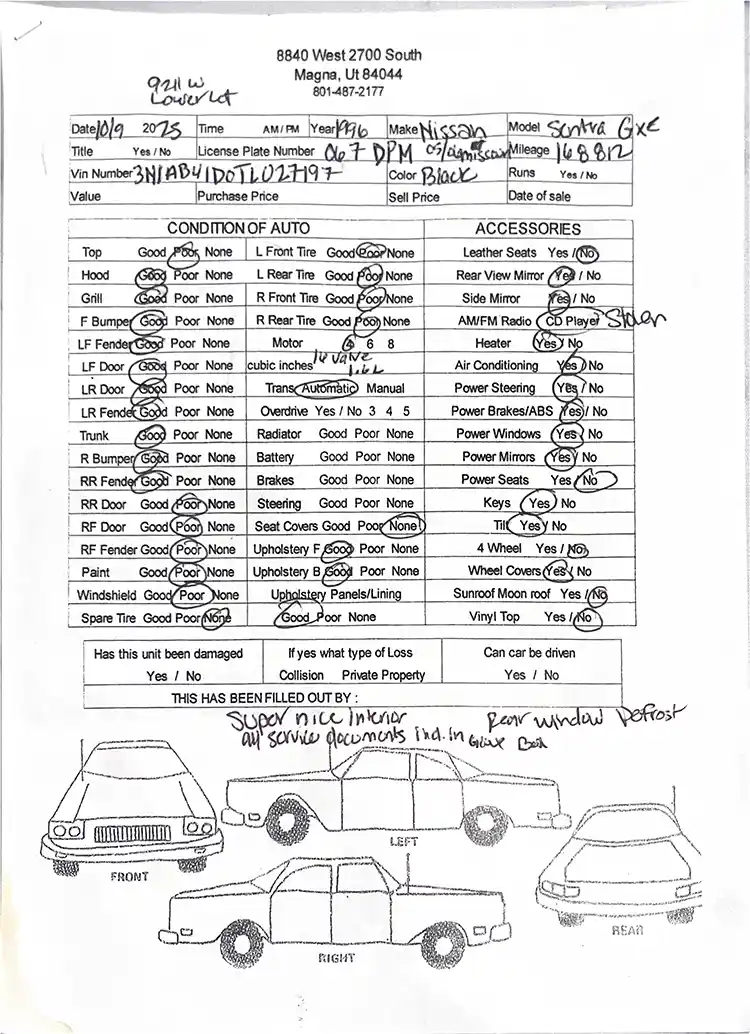 8840 West 2700 South
Magna, Ut 84044
801-487-2177
9211 W
Lower Lot
Date 10/9 2025 Time AM / PM Year 1996 Make Nissan Model Sentra GXE
Title Yes / No License Plate Number 067 DPM Mileage 168812
Vin Number 3N1AB41D0TL027197 Color Black Runs Yes / No
Value Purchase Price Sell Price Date of sale
CONDITION OF AUTO ACCESSORIES
Top Good Poor None L Front Tire Good Poor None Leather Seats Yes / No
Hood Good Poor None L Rear Tire Good Poor None Rear View Mirror Yes / No
Grill Good Poor None R Front Tire Good Poor None Side Mirror Yes / No
F Bumper Good Poor None R Rear Tire Good Poor None AM/FM Radio CD Player Stolen
LF Fender Good Poor None Motor 4 6 8 Heater Yes / No
LF Door Good Poor None cubic inches 16 valve 1.6L Air Conditioning Yes / No
LR Door Good Poor None Trans Automatic Manual Power Steering Yes / No
LR Fender Good Poor None Overdrive Yes / No 3 4 5 Power Brakes/ABS Yes / No
Trunk Good Poor None Radiator Good Poor None Power Windows Yes / No
R Bumper Good Poor None Battery Good Poor None Power Mirrors Yes / No
RR Fender Good Poor None Brakes Good Poor None Power Seats Yes / No
RR Door Good Poor None Steering Good Poor None Keys Yes / No
RF Door Good Poor None Seat Covers Good Poor None Tilt Yes / No
RF Fender Good Poor None Upholstery F Good Poor None 4 Wheel Yes / No
Paint Good Poor None Upholstery B Good Poor None Wheel Covers Yes / No
Windshield Good Poor None Upholstery Panels/Lining Sunroof Moon roof Yes / No
Spare Tire Good Poor None Good Poor None Vinyl Top Yes / No
Has this unit been damaged If yes what type of Loss Can car be driven
Yes / No Collision Private Property Yes / No
THIS HAS BEEN FILLED OUT BY :
Super nice Interior Rear window Defrost
all service documents ind. in Glove Box
LEFT
FRONT
REAR
RIGHT